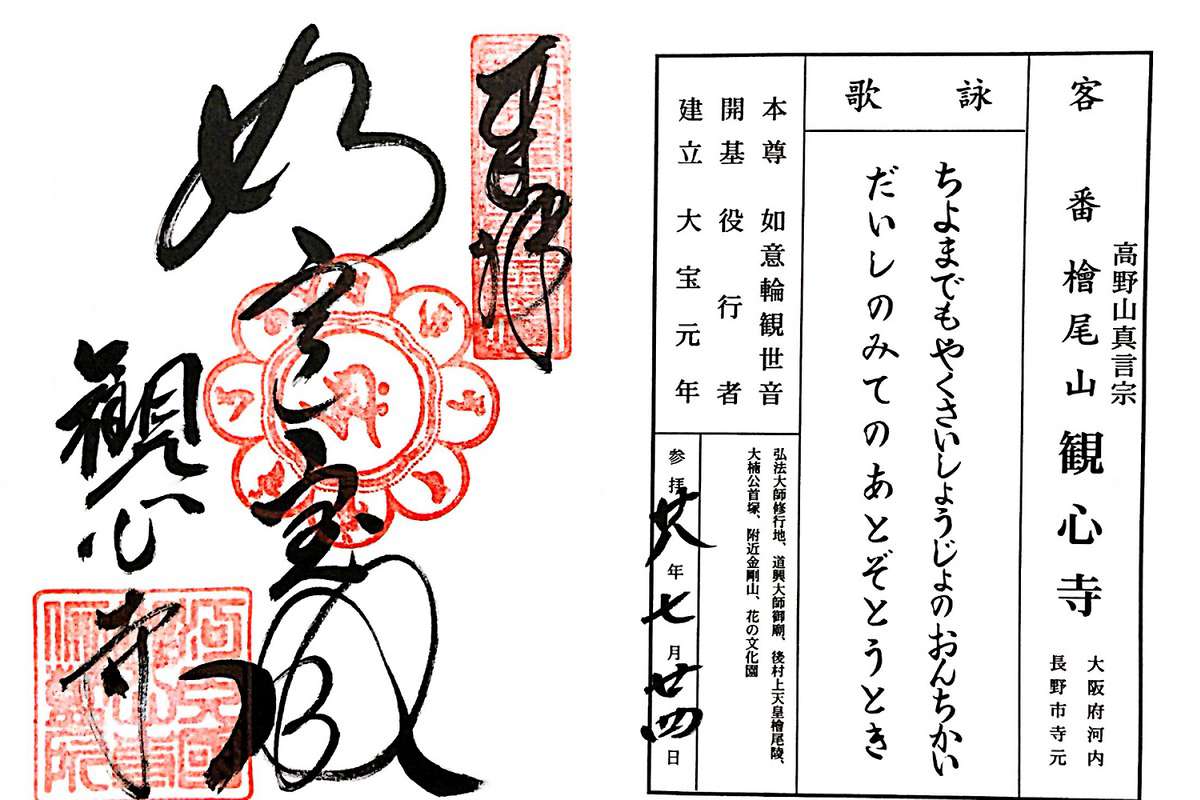 客番
高野山真言宗
檜尾山
観心寺
大阪府河内
長野市寺元
詠歌
ちよまでもやくさいしょうじょのおんちかい
だいしのみてのあとぞとうとき
本尊 如意輪観世音
開基 役行者
建立 大宝元年
弘法大師修行地、道興大師御廟、後村上天皇檜尾陵、
大楠公首塚、附近金剛山、花の文化園
参拝廿八年七月廿四日
奉拝
如意宝殿
觀心寺